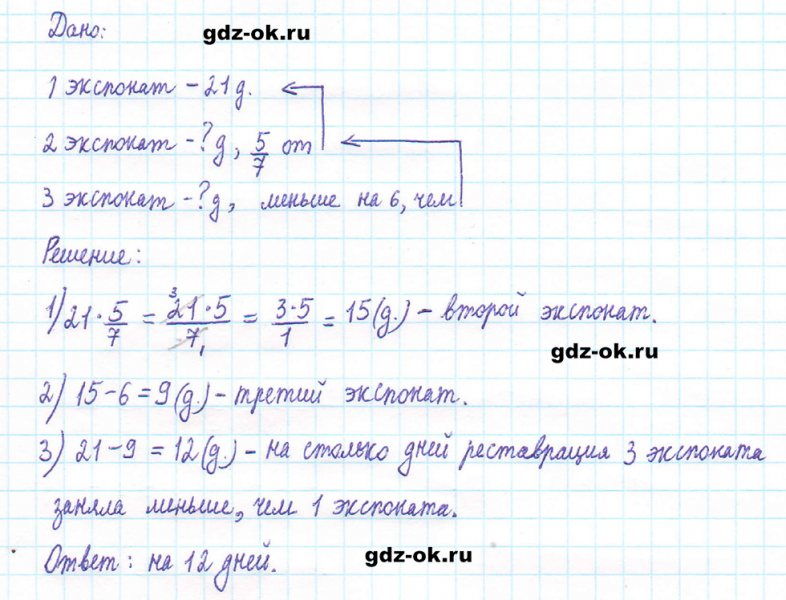 Дано:
gdz-ok.ru
1 экспонат - 21 д.
2 экспонат - ? д, 5/7 от
3 экспонат - ? д, меньше на 6, чем
Решение:
1) 21 · 5/7 = 21 · 5/7 = 3 · 5/1 = 15 (д.) - второй экспонат.
gdz-ok.ru
2) 15 - 6 = 9 (д.) - третий экспонат.
3) 21 - 9 = 12 (д.) - на столько дней реставрация 3 экспоната
заняла меньше, чем 1 экспоната.
Ответ: на 12 дней.
gdz-ok.ru